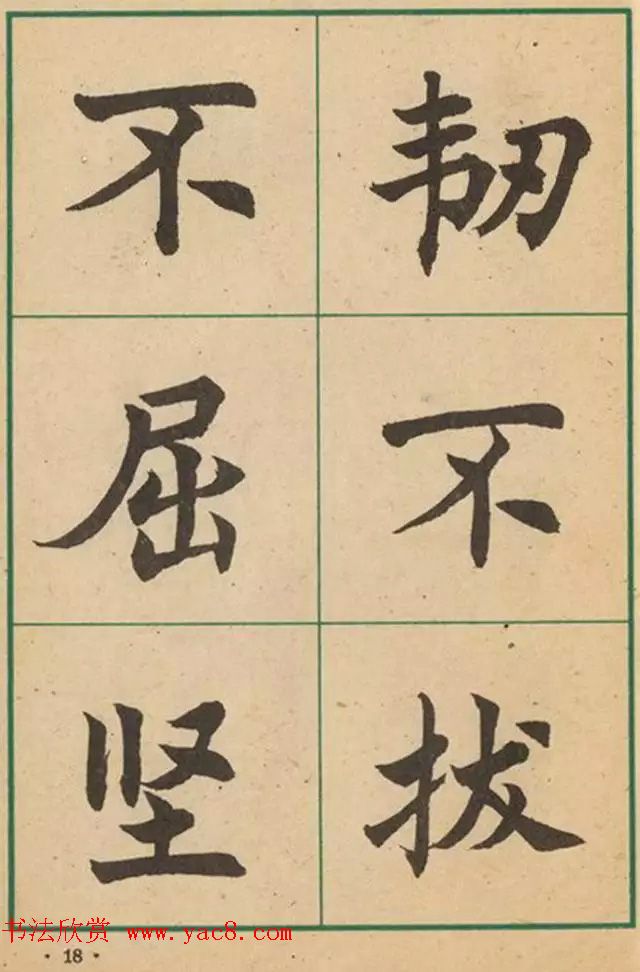 不屈坚
韧不拔
书法欣赏 www.yac8.com
·18·